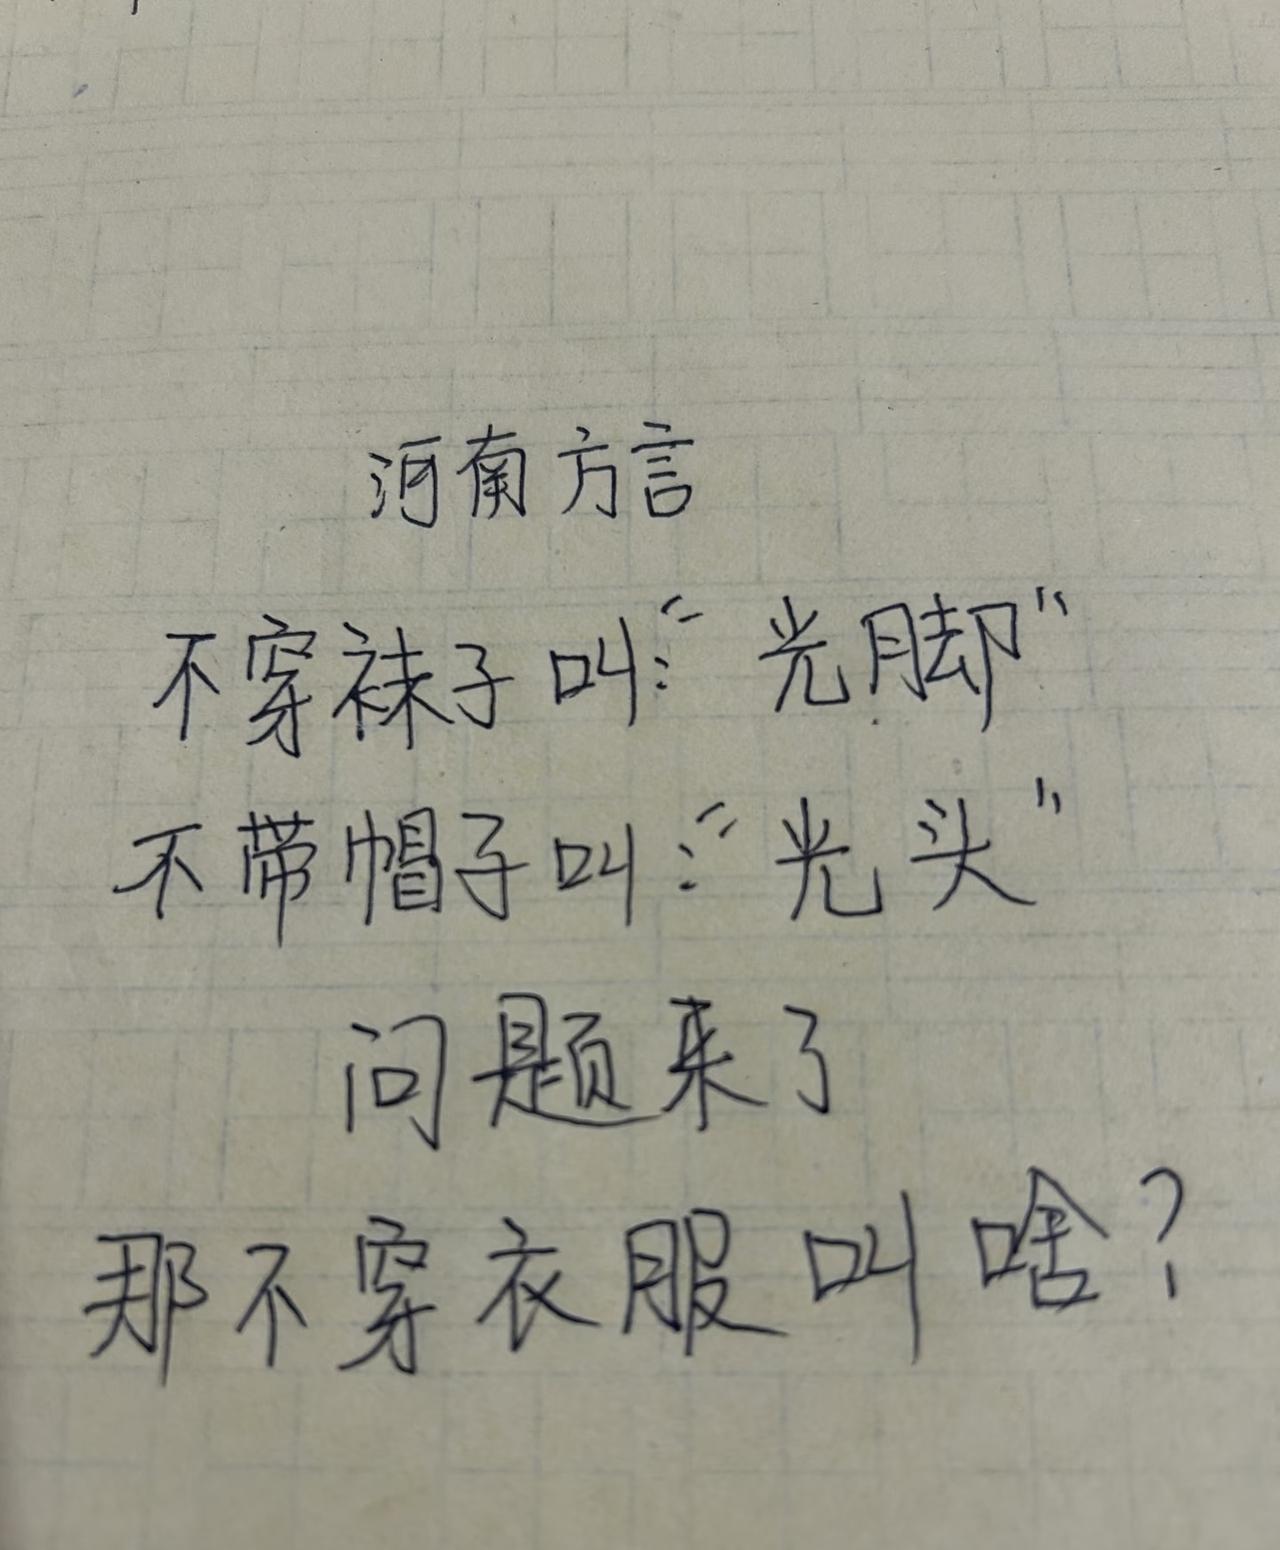 河南方言
不穿袜子叫：“光脚”
不带帽子叫：“光头”
问题来了
那不穿衣服叫啥？